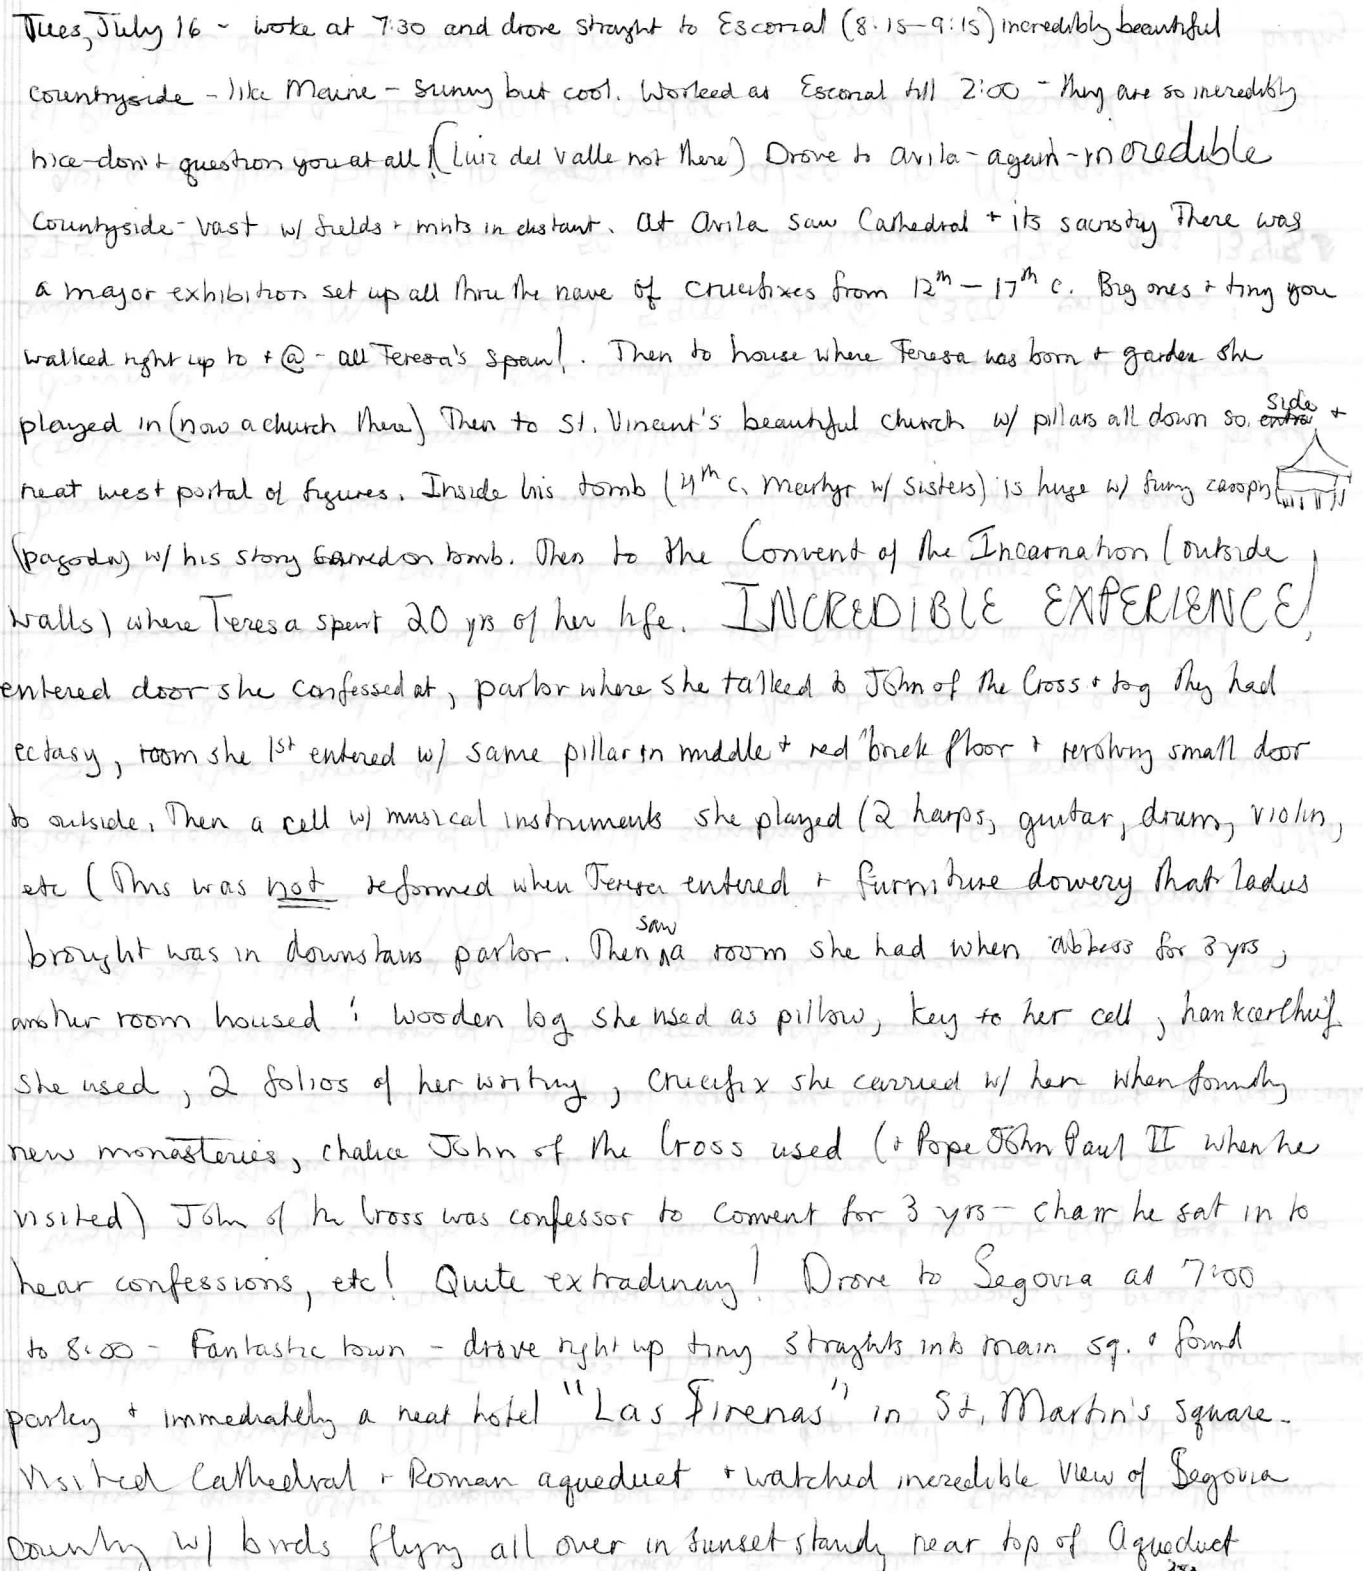 Tues, July 16 - woke at 7:30 and drove straght to Escorial (8:15-9:15) incredibly beautiful
countryside - like Maine - sunny but cool. Worked at Escorial till 2:00 - they are so incredibly
nice - don't question you at all! (Luiz del Valle not there) Drove to Avila - again - incredible
countyside - vast w/ fields + mnts in distant. At Avila saw Cathedral + its sacristy There was
a major exhibition set up all thru the nave of crucifixes from 12th - 17th c. Big ones + tiny you
walked right up to + @ - all Teresa's Spain!. Then to house where Teresa was born + garden she
played in (now a church there) Then to St. Vincent's beautiful church w/ pillars all down so. side +
neat west portal of figures. Inside his tomb (4th c. martyr w/ sisters) is huge w/ funny canopy
(pagoda) w/ his story carved on tomb. Then to the Convent of the Incarnation (outside
walls) where Teresa spent 20 yrs of her life. INCREDIBLE EXPERIENCE!
entered door she confessed at, parlor where she talked to John of the Cross + tog they had
ectasy, room she 1st entered w/ same pillar in middle + red brick floor + revolving small door
to outside. Then a cell w/ musical instruments she played (2 harps, guitar, drum, violin,
etc (This was not reformed when Teresa entered + furniture dowery that ladies
brought was in downstairs parlor. Then saw a room she had when abbess for 3 yrs,
another room housed : wooden log she used as pillow, key to her cell, hankcerchief
she used, 2 folios of her writing, crucifix she carried w/ her when founding
new monasteries, chalice John of the Cross used (+ Pope John Paul II when he
visited) John of the Cross was confessor to convent for 3 yrs - chair he sat in to
hear confessions, etc! Quite extradinary! Drove to Segovia at 7:00
to 8:00 - Fantastic town - drove right up tiny straghts into main sq. + found
parking + immediately a neat hotel "Las Sirenas" in St. Martin's square -
visited Cathedral + Roman aqueduct + watched incredible view of Segovia
country w/ birds flying all over in sunset standing near top of Aqueduct